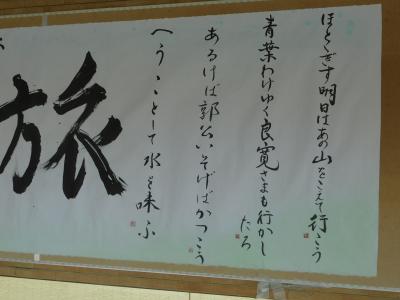 ほとゝぎす明日はあの山をこえて行こう
青葉わけゆく良寛さまも行かし
たろ
あるけば郭公いそげばかつこう
へう〳〵として水を味ふ
旅